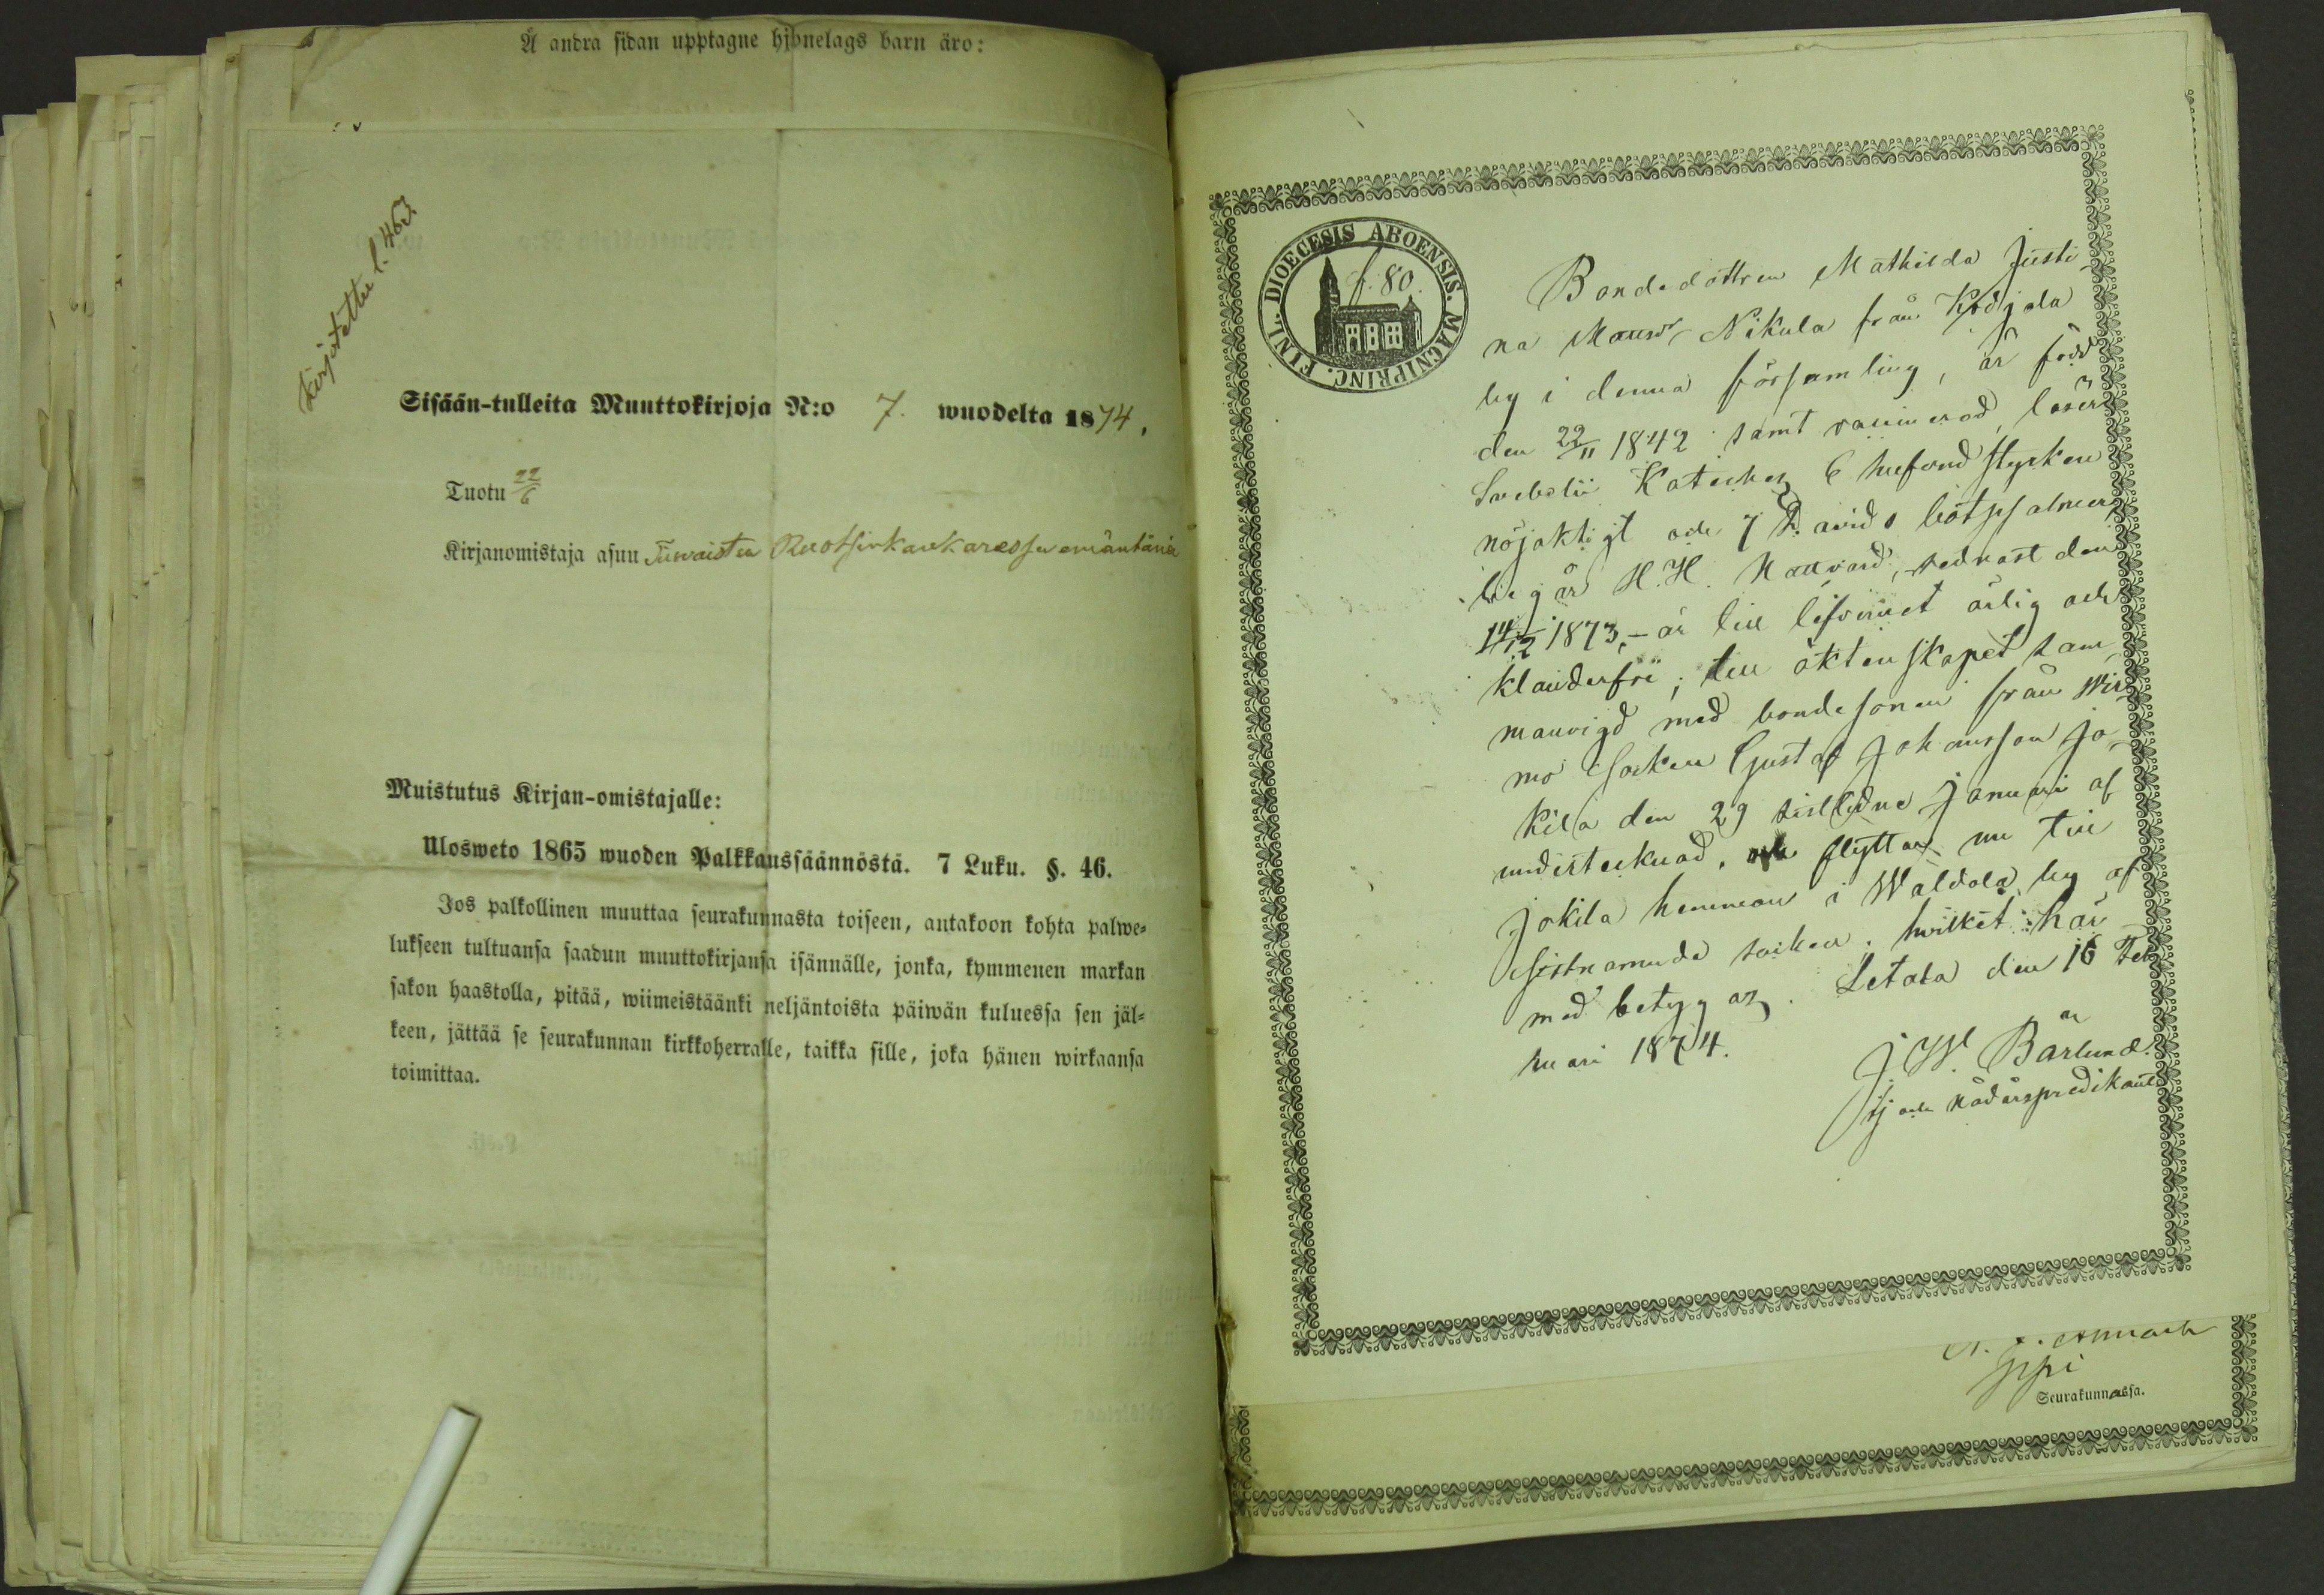 Å andra sidan upptagne hjonelags barn äro:
Kirjotettu l. 462
Sisään-tulleita Muuttokirjoja N:o 7. wuodelta 1874.
Tuotu 22/6
Kirjanomistaja asuu Tuwaisten Ruotsinkankaressa emäntänä
Muistutus Kirjan-omistajalle:
Ulosweto 1865 wuoden Palkkaussäännöstä. 7 Luku. §. 46.
Jos palkollinen muuttaa seurakunnasta toiseen, antakoon kohta palwe-
lukseen tultuansa saadun muuttokirjansa isännälle, jonka, kymmenen markan
sakon haastolla, pitää, wiimeistäänki neljäntoista päiwän kuluessa sen jäl-
keen, jättää se seurakunnan kirkkoherralle, taikka sille, joka hänen wirkaansa
toimittaa.
DIOECESIS ABOENSIS. MAGNIPRINC. FINL.
f. 80.
Bondedottren Mathilda Justi-
na Mattsdr Nikula från Kodjala
by i denna församling, är född
den 22/11 1842 samt vaccinerad, läser
Svebelii Kateches 6 hufvudstycken
nöjaktigt och 7 Davids botpsalmer,
begår H. H. Nattvard, sednast den
14/12 1873, - är till lefvernet ärlig och
klanderfri; till äktenskapet sam-
manvigd med bondesonen från Wir-
mo Socken Gustaf Johansson Jo-
kila den 29 sistlidne Januari af
undertecknad, och flyttar nu till
Jokila hemman i Waldola by af
sistnämnda socken, hvilket här-
med betygas. Letala den 16 Feb-
ruari 1874.
J W. Bärlund.
tj och nådårspredikant
Seurakunnassa.